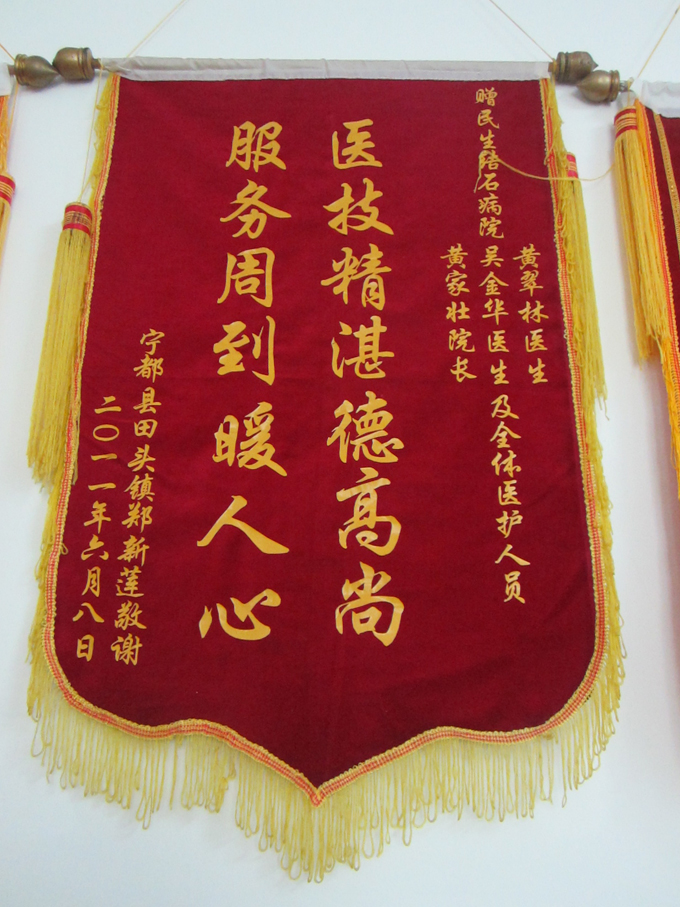 赠民生结石病院
黄翠林医生
吴金华医生及全体医护人员
黄家壮院长
医技精湛德高尚
服务周到暖人心
宁都县田头镇郑新莲敬谢
二〇一一年六月八日